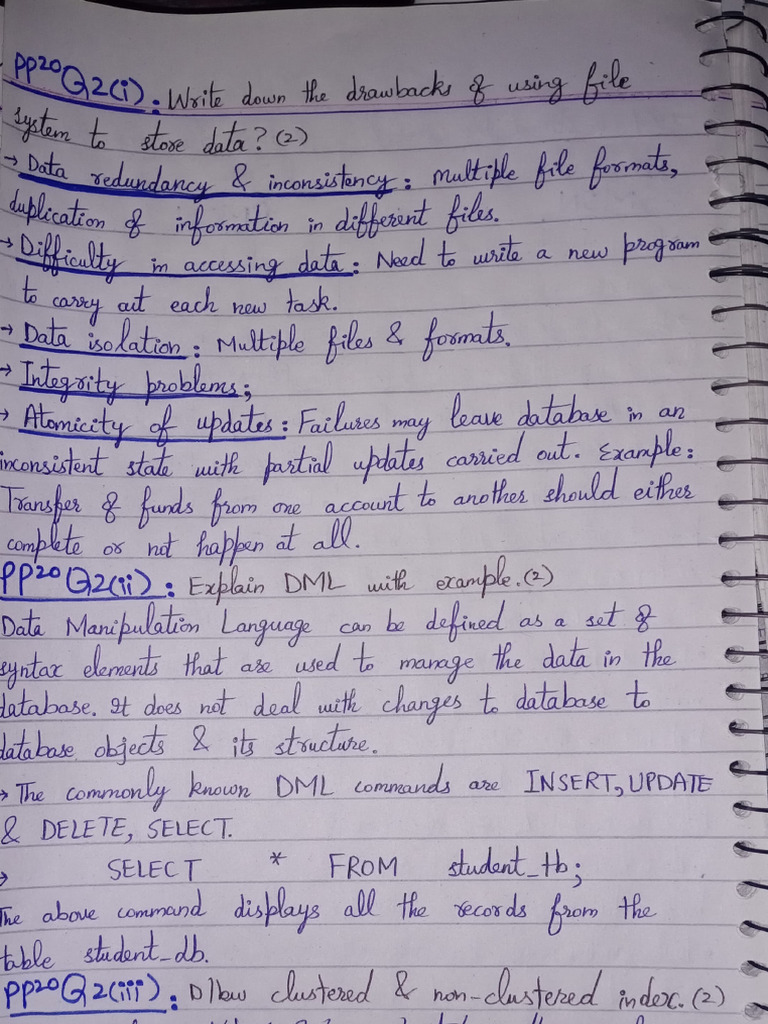 PP20 Q2(i): Write down the drawbacks of using file
system to store data? (2)
→ Data redundancy & inconsistency: Multiple file formats,
duplication of information in different files.
→ Difficulty in accessing data: Need to write a new program
to carry out each new task.
→ Data isolation: Multiple files & formats.
→ Integrity problems;
→ Atomicity of updates: Failures may leave database in an
inconsistent state with partial updates carried out. Example:
Transfer of funds from one account to another should either
complete or not happen at all.
PP20 Q2(ii): Explain DML with example. (2)
Data Manipulation Language can be defined as a set of
syntax elements that are used to manage the data in the
database. It does not deal with changes to database to
database objects & its structure.
→ The commonly known DML commands are INSERT, UPDATE
& DELETE, SELECT.
→ SELECT * FROM student_tb;
The above command displays all the records from the
table student_db.
PP20 Q2(iii): D/bw clustered & non-clustered index. (2)